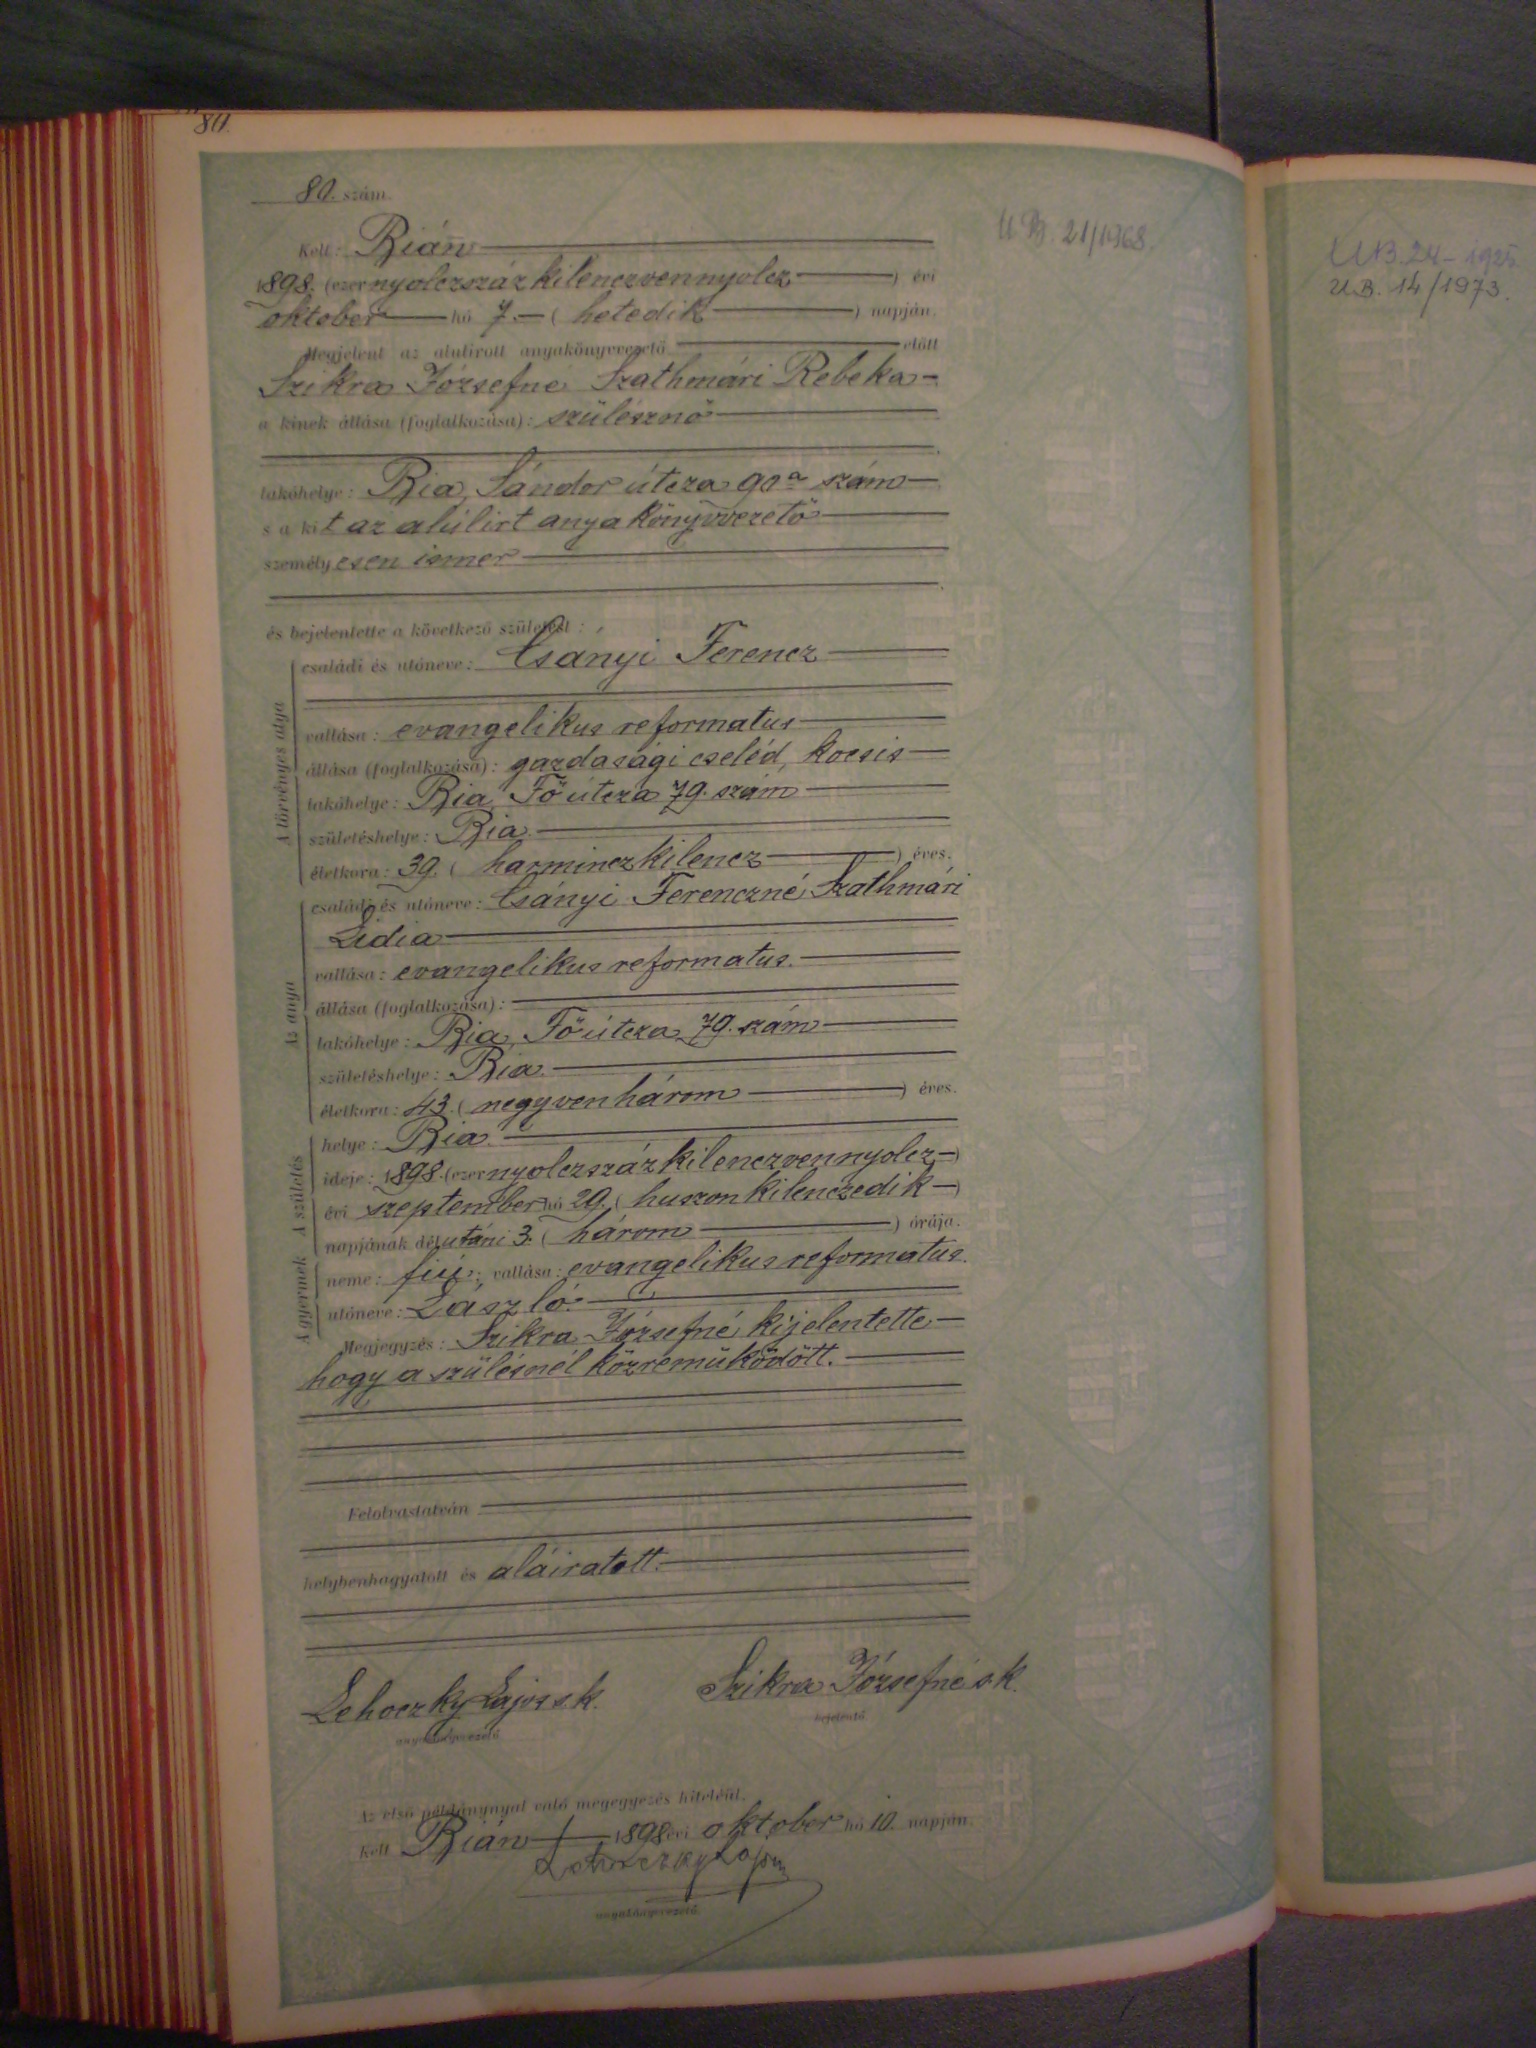 80.
80. szám.
U.B. 21/1968.
Kelt: Bián
1898. (ezernyolczszázkilenczvennyolcz) évi
október hó 7. (hetedik) napján.
Megjelent az alulirott anyakönyvvezető előtt
Szikra Józsefné Szathmári Rebeka
a kinek állása (foglalkozása): szülésznő
lakóhelye: Bia, Sándor útcza 90a szám
s a kit az alúlirt anyakönyvvezető
személyesen ismer
és bejelentette a következő születést:
A törvényes atya
családi és utóneve: Csányi Ferencz
vallása: evangelikus reformatus
állása (foglalkozása): gazdasági cseléd, kocsis
lakóhelye: Bia, Fő útcza 79. szám
születéshelye: Bia
életkora: 39. (harminczkilencz) éves.
Az anya
családi és utóneve: Csányi Ferenczné, Szathmári
Lidia
vallása: evangelikus reformatus.
állása (foglalkozása):
lakóhelye: Bia, Fő útcza 79. szám
születéshelye: Bia.
életkora: 43. (negyvenhárom) éves.
A születés
helye: Bia
ideje: 1898. (ezernyolczszázkilenczvennyolcz)
évi szeptember hó 29. (huszonkilenczedik)
napjának délutáni 3. (három) órája.
A gyermek
neme: fiú; vallása: evangelikus reformatus.
utóneve: László.
Megjegyzés: Szikra Józsefné kijelentette
hogy a szülésnél közremüködött.
Felolvastatván
helybenhagyatott és aláiratott.
Lehoczky Lajos sk. Szikra Józsefné sk.
anyakönyvvezető bejelentő.
Az első példánynyal való megegyezés hiteléül.
Kelt Bián 1898 évi október hó 10. napján.
Lehoczky Lajos
anyakönyvvezető.
U.B. 24-1925.
U.B. 14/1973.